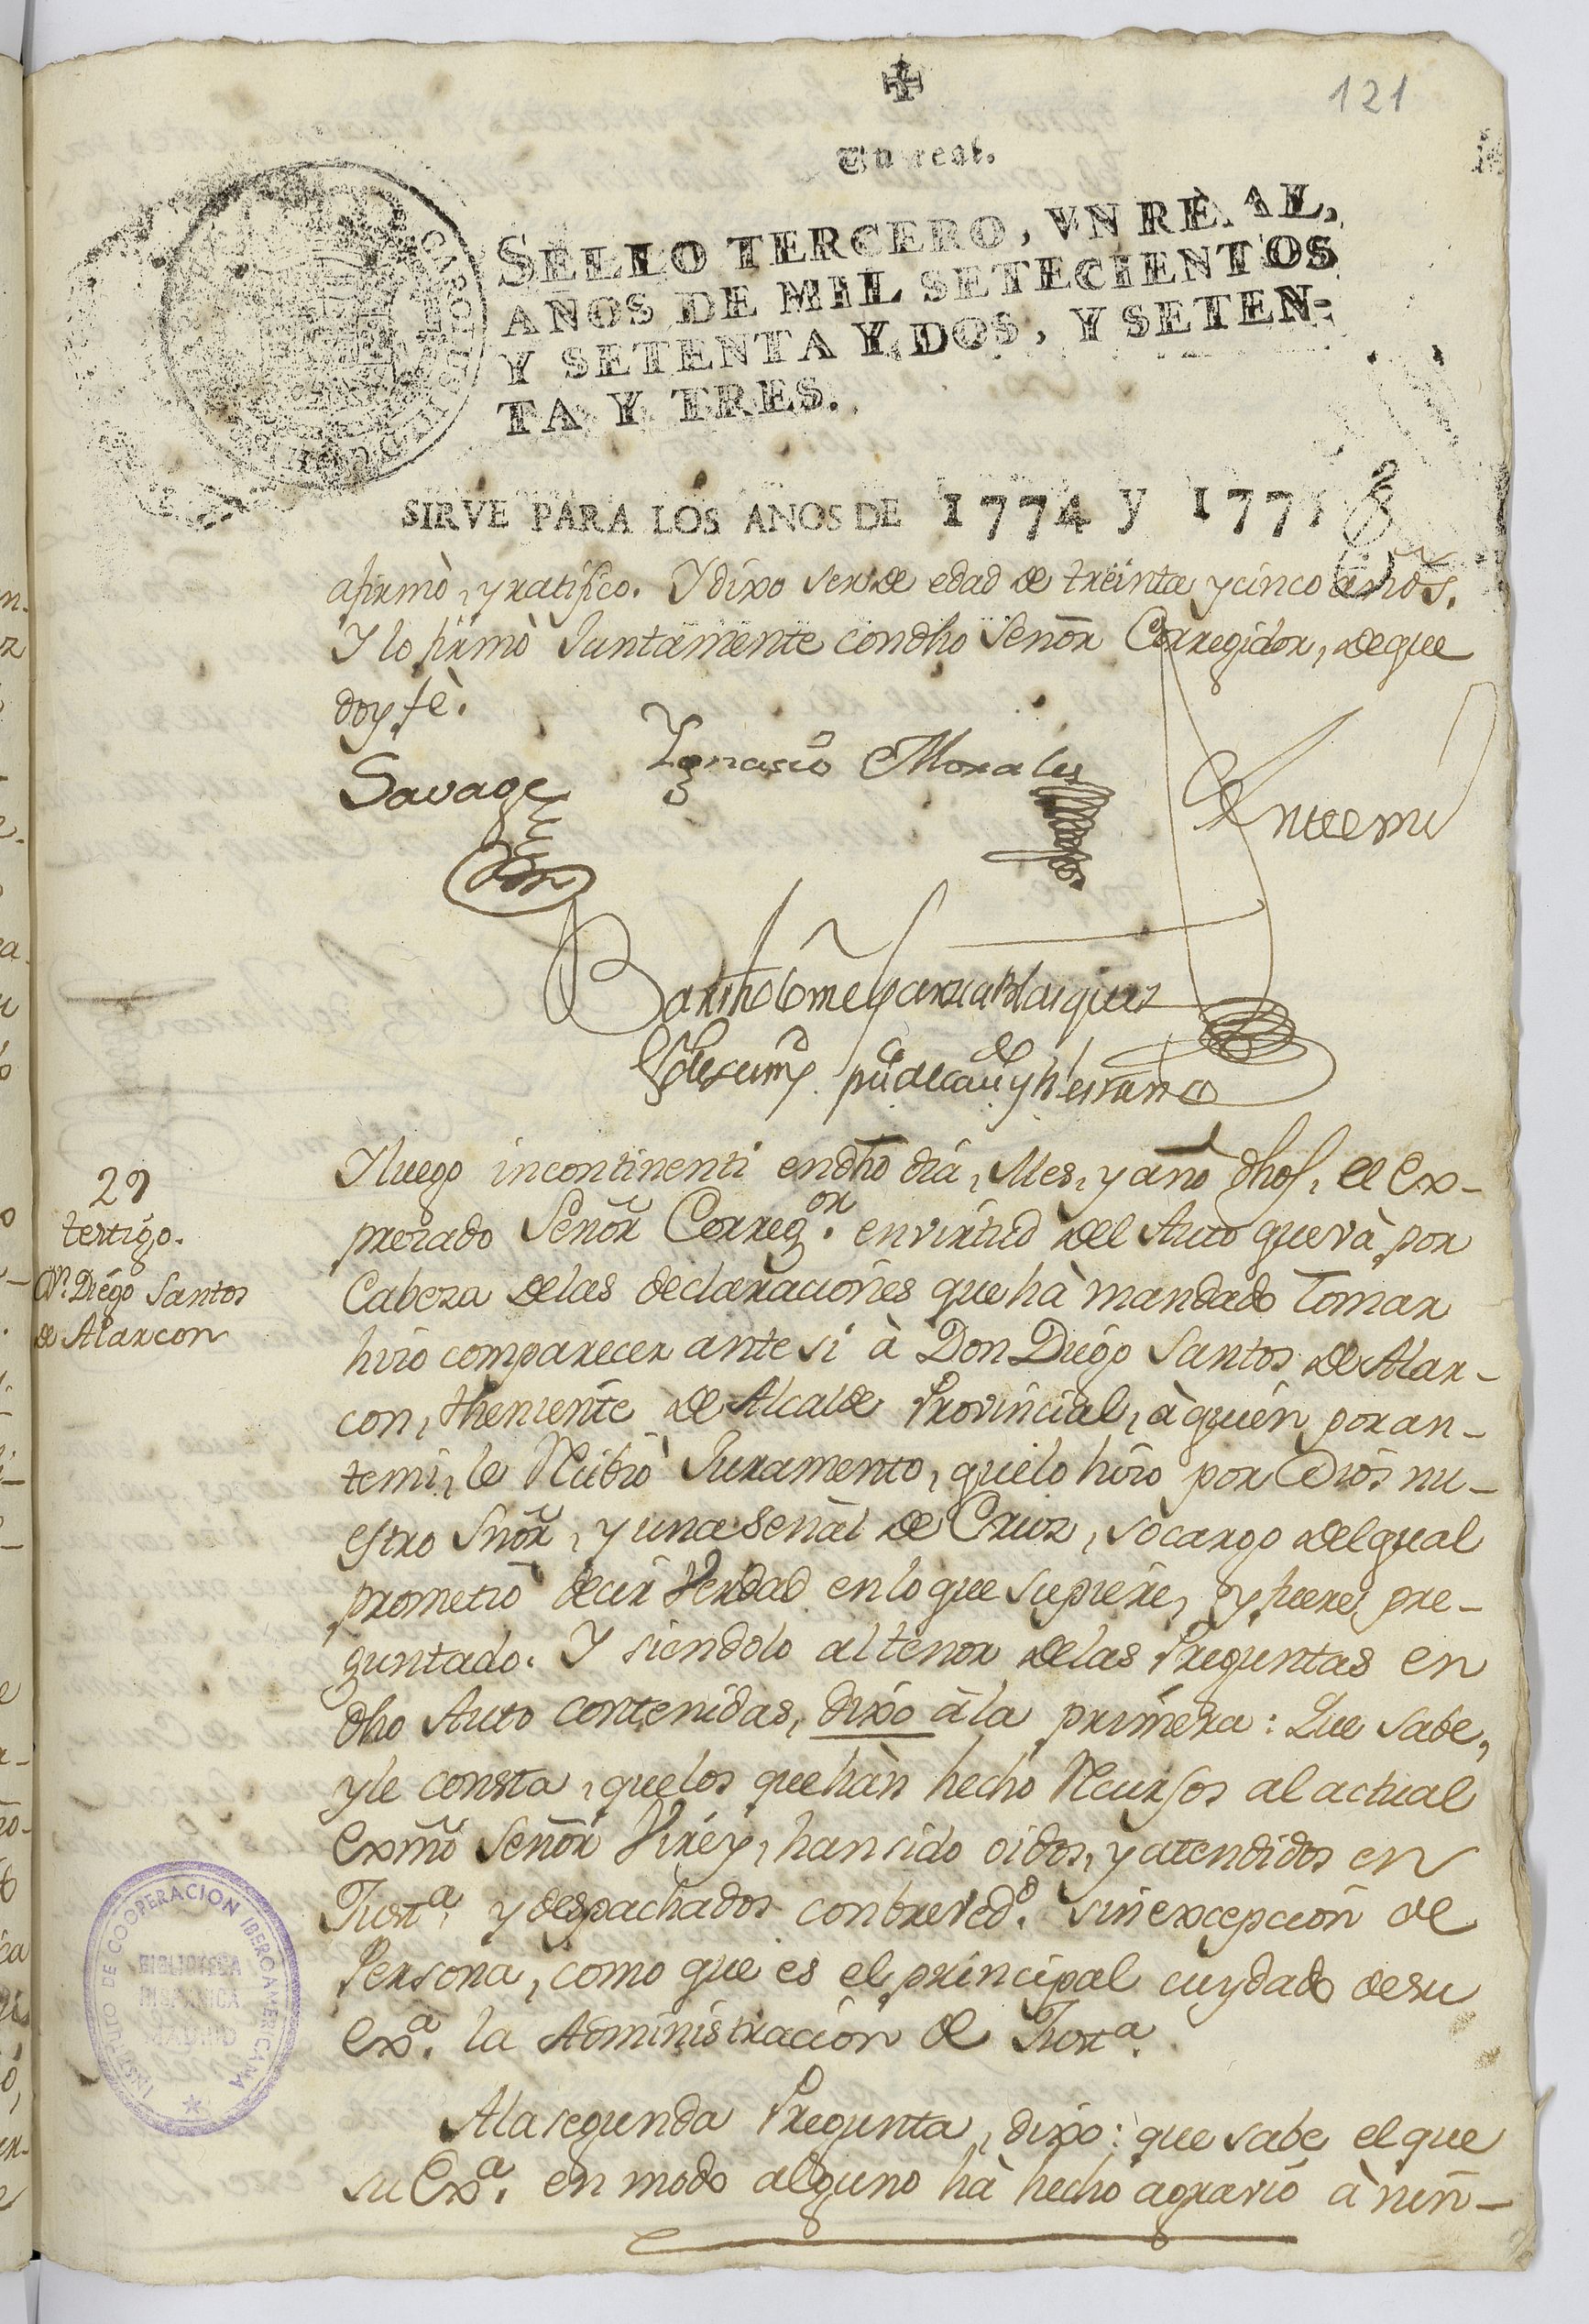 121
Un real.
SELLO TERCERO, VN REAL,
AÑOS DE MIL SETECIENTOS
Y SETENTA Y DOS, Y SETEN-
TA Y TRES.
SIRVE PARA LOS AÑOS DE 1774 y 177
afirmò, y ratifico. Y dixo ser de edad de treinta y cinco años.
Y lo firmò Juntamente con dho Señor Corregidor, de que
doy fè.
Savage
Ygnasio Morales
Ante mi
Bartholome Garzia Blasques
pu.co de cav.do y
Y luego incontinenti en dho dia, Mes, y año dhos, el Ex-
presado Señor Correg.or en virtud del Auto que và por
Cabeza de las declaraciones que hà mandado Tomar
hizo comparecer ante si à Don Diego Santos de Alar-
con, theniente de Alcalde Provincial, à quien por an-
te mi, le Rcibiò Juramento, que lo hizo por Dios nu-
estro Señor, y una señal de Cruz, so cargo del qual
prometiò decir Verdad en lo que supiere, y fuere pre-
guntado. Y siendolo al tenor de las Preguntas en
dho Auto contenidas, dixo à la primera: Que sabe,
y le consta, que los que hàn hecho Rcursos al actual
Exmo Señor Virèy, han sido oidos, y atendidos en
Just.a y despachados con breved.d sin excepcion de
Persona, como que es el principal cuydado de su
Ex.a la Administracion de Just.a
A la segunda Pregunta, dixo: que sabe el que
su Ex.a en modo alguno hà hecho agravio à nin-
29
testigo.
Dn. Diego Santos
de Alarcon
INSTITUTO DE COOPERACION IBEROAMERICANA
BIBLIOTECA
HISPANICA
MADRID